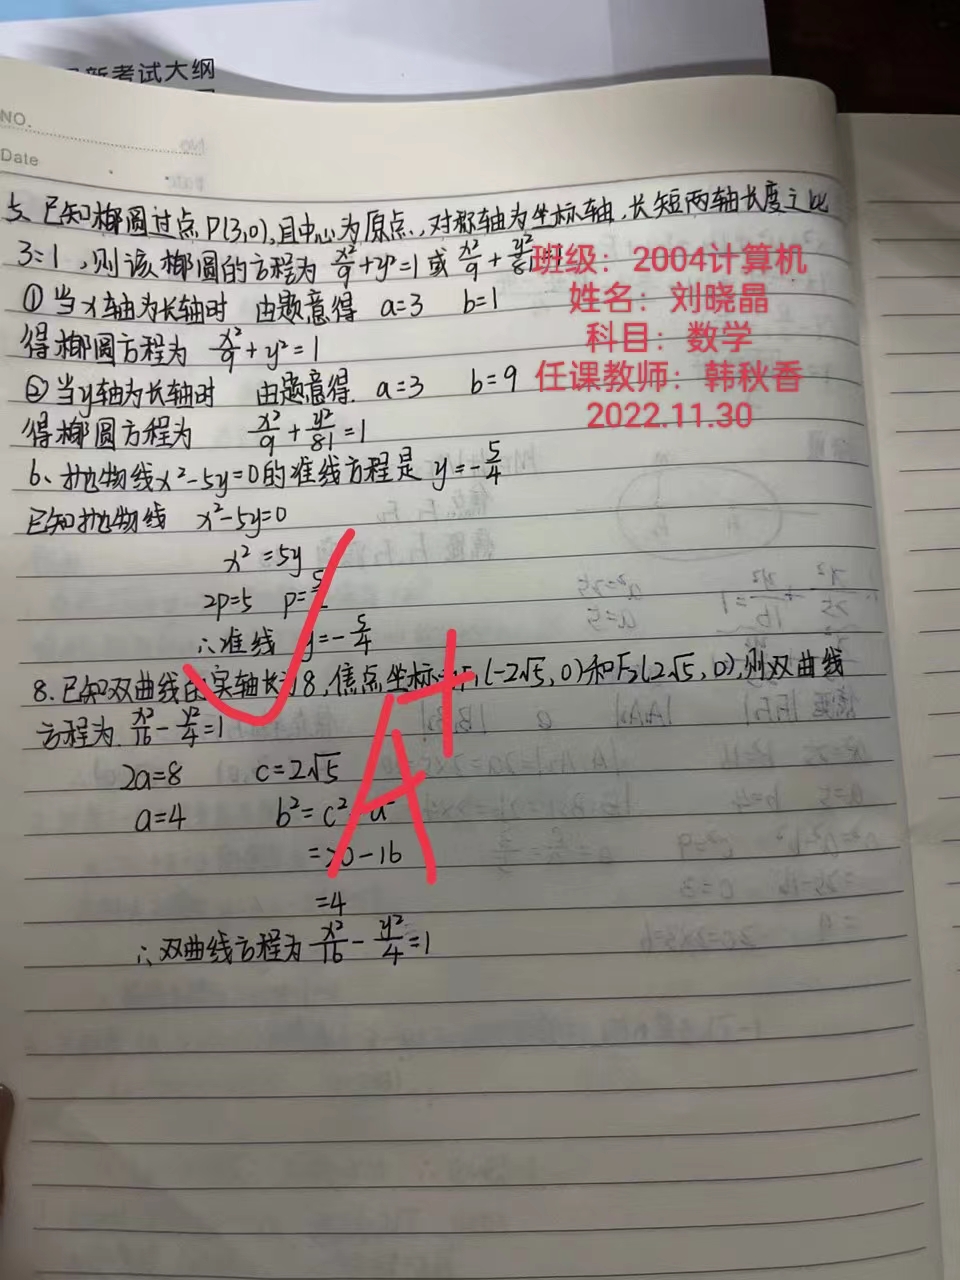 新考试大纲
NO.
Date
5、已知椭圆过点P(3,0),且中心为原点,对称轴为坐标轴,长短两轴长度之比
3=1,则该椭圆的方程为 x²/9+y²=1或 x²/9+y²/81=1
①当x轴为长轴时 由题意得 a=3 b=1
得椭圆方程为 x²/9+y²=1
②当y轴为长轴时 由题意得. a=3 b=9
得椭圆方程为 x²/9+y²/81=1
班级:2004计算机
姓名:刘晓晶
科目:数学
任课教师:韩秋香
2022.11.30
6、抛物线x²-5y=0的准线方程是 y=-5/4
已知抛物线 x²-5y=0
x²=5y
2p=5 p=5/2
∴准线 y=-5/4
8.已知双曲线的实轴长为8,焦点坐标=F₁(-2√5,0)和F₂(2√5,0),则双曲线
方程为 x²/16-y²/4=1
2a=8 c=2√5
a=4 b²=c²-a²
=20-16
=4
∴双曲线方程为 x²/16-y²/4=1
A+